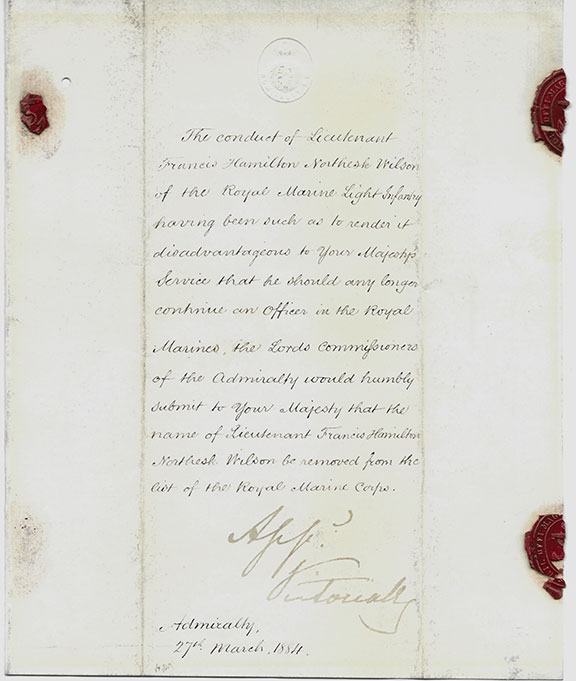 The conduct of Lieutenant
Francis Hamilton Northesk Wilson
of the Royal Marine Light Infantry
having been such as to render it
disadvantageous to Your Majesty's
Service that he should any longer
continue an Officer in the Royal
Marines, the Lords Commissioners
of the Admiralty would humbly
submit to Your Majesty that the
name of Lieutenant Francis Hamilton
Northesk Wilson be removed from the
list of the Royal Marine Corps.
Appd.
Victoria RI
Admiralty,
27th March, 1884.